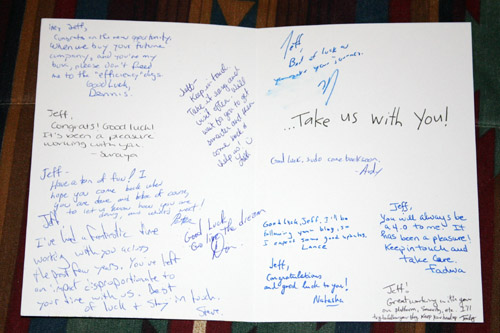 Hey, Jeff,
Congrats on the new opportunity.
When we buy your future
company, and you're my
turn, please don't feed
me to the "efficiency" dogs
Good Luck,
Dennis.
Jeff-
Keep in touch
Take it easy and
wait after well
want to you to get
smarter and then
come back &
help us!
Jeff
Jeff,
Best of luck on
your journey.
Jeff,
Congrats! Good luck!
It's been a pleasure
working with you
-Suraya
...Take us with You!
Good luck, & do come back soon.
-Andy
Jeff-
Have a ton of fun! I
hope you come back when
you are done and, of course,
to let us know how you are
doing, and what's next!
Jeff
I've had a fantastic time
working with you across
the past few years. You've left
an impact disproportionate to
your time with us. Best
of luck & stay in touch.
Steve
Good Luck
Go live the dream
Good luck, Jeff. I'll be
following your blog, so
I expect some good updates.
Lance
Jeff,
Congratulations
and good luck to you!
Natasha
Jeff,
You will always
be a 4.0 to me. It
has been a pleasure!
Keep in touch and
take care.
Fadwa
Jeff!
Great working w/ you
on Platform, Security, etc. I'll
blog keep in touch